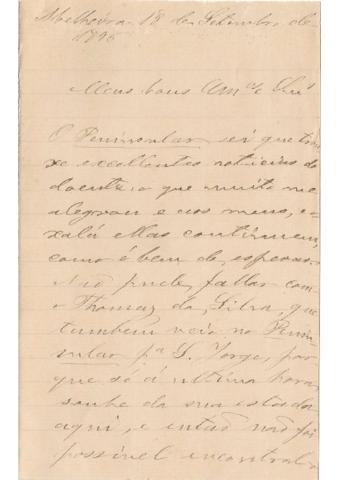 18 de Setembro de
1895
Meus bons Am.os e Snr.
O Peninsular, sei que trou
xe excellentes noticias do
doente, o que muito me
alegrou e aos meus, o
xalá ellas continuem,
como é bem de esperar.
Não pude fallar com
o Thomaz da Silva, que
tambem veio no Penin
sular p.a S. Jorge, por
que só á ultima hora
soube da sua estada
aqui, e então não foi
possivel encontral-o